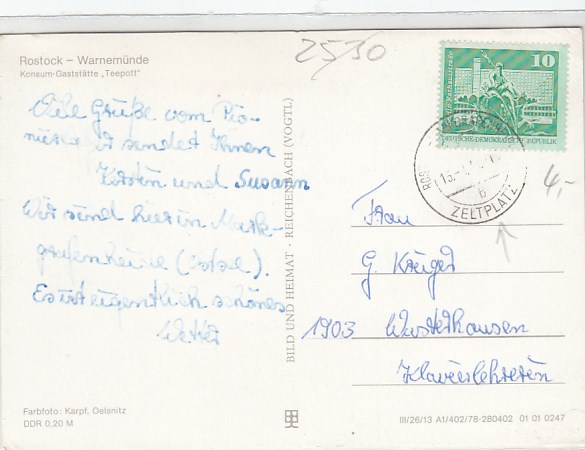 Rostock – Warnemünde
Konsum-Gaststätte „Teepott"
2530
Grüße vom Pio-
sendet Ihnen
Kerstin und Susann
Wir sind hier in Mark-
grafenheide (Ostsee).
Es ist eigentlich schönes
Wetter
Farbfoto: Karpf, Oelsnitz
DDR 0,20 M
BILD UND HEIMAT · REICHENBACH (VOGTL)
10
DEUTSCHE DEMOKRATISCHE REPUBLIK
ROS
b
ZELTPLATZ
4,-
Frau
G. Krüger
1903 Wusterhausen
Klavierlehrerin
III/26/13 A1/402/78-280402 01 01 0247